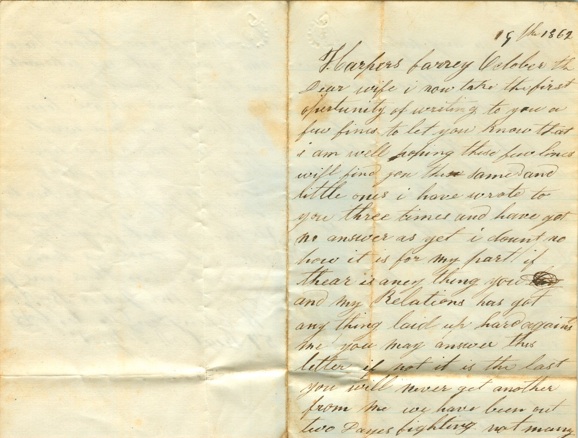 19th 1862
Harpers farrey October th
Dear wife i now take the first
opertunity of writing to you a
few lines to let you know that
i am well hoping these few lines
will find you the same and
little ones i have wrote to
you three times and have got
no answer as yet i dount no
how it is for my part if
thear is aney thing you
and my Relations has got
any thing laid up hard againts
me you may answer this
letter if not it is the last
you will never get another
from me we have been out
two Dayes fighting not many